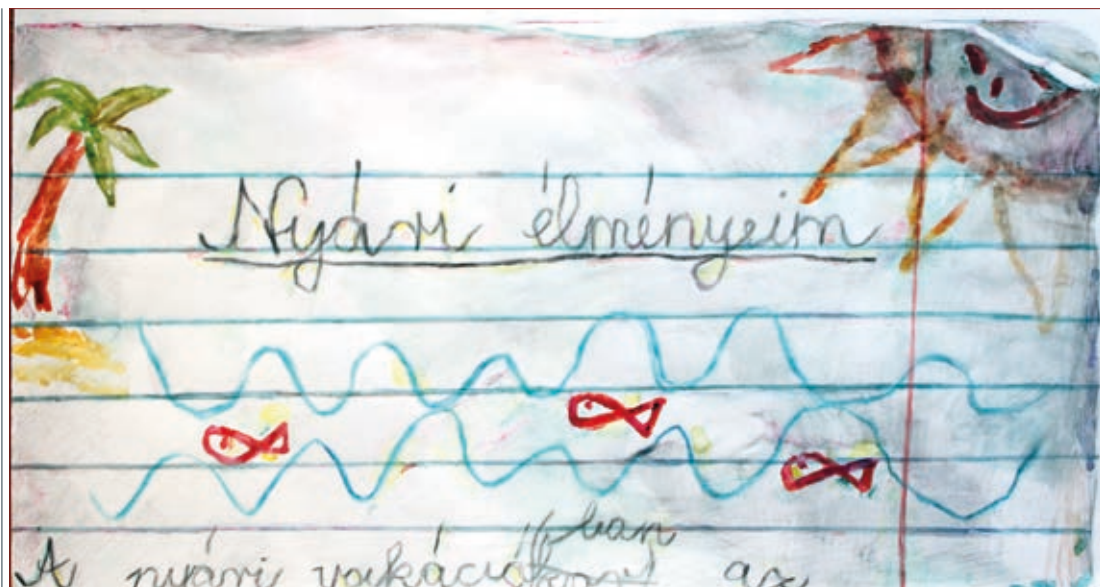 Nyári élményeim
ban
A nyári vakáció az